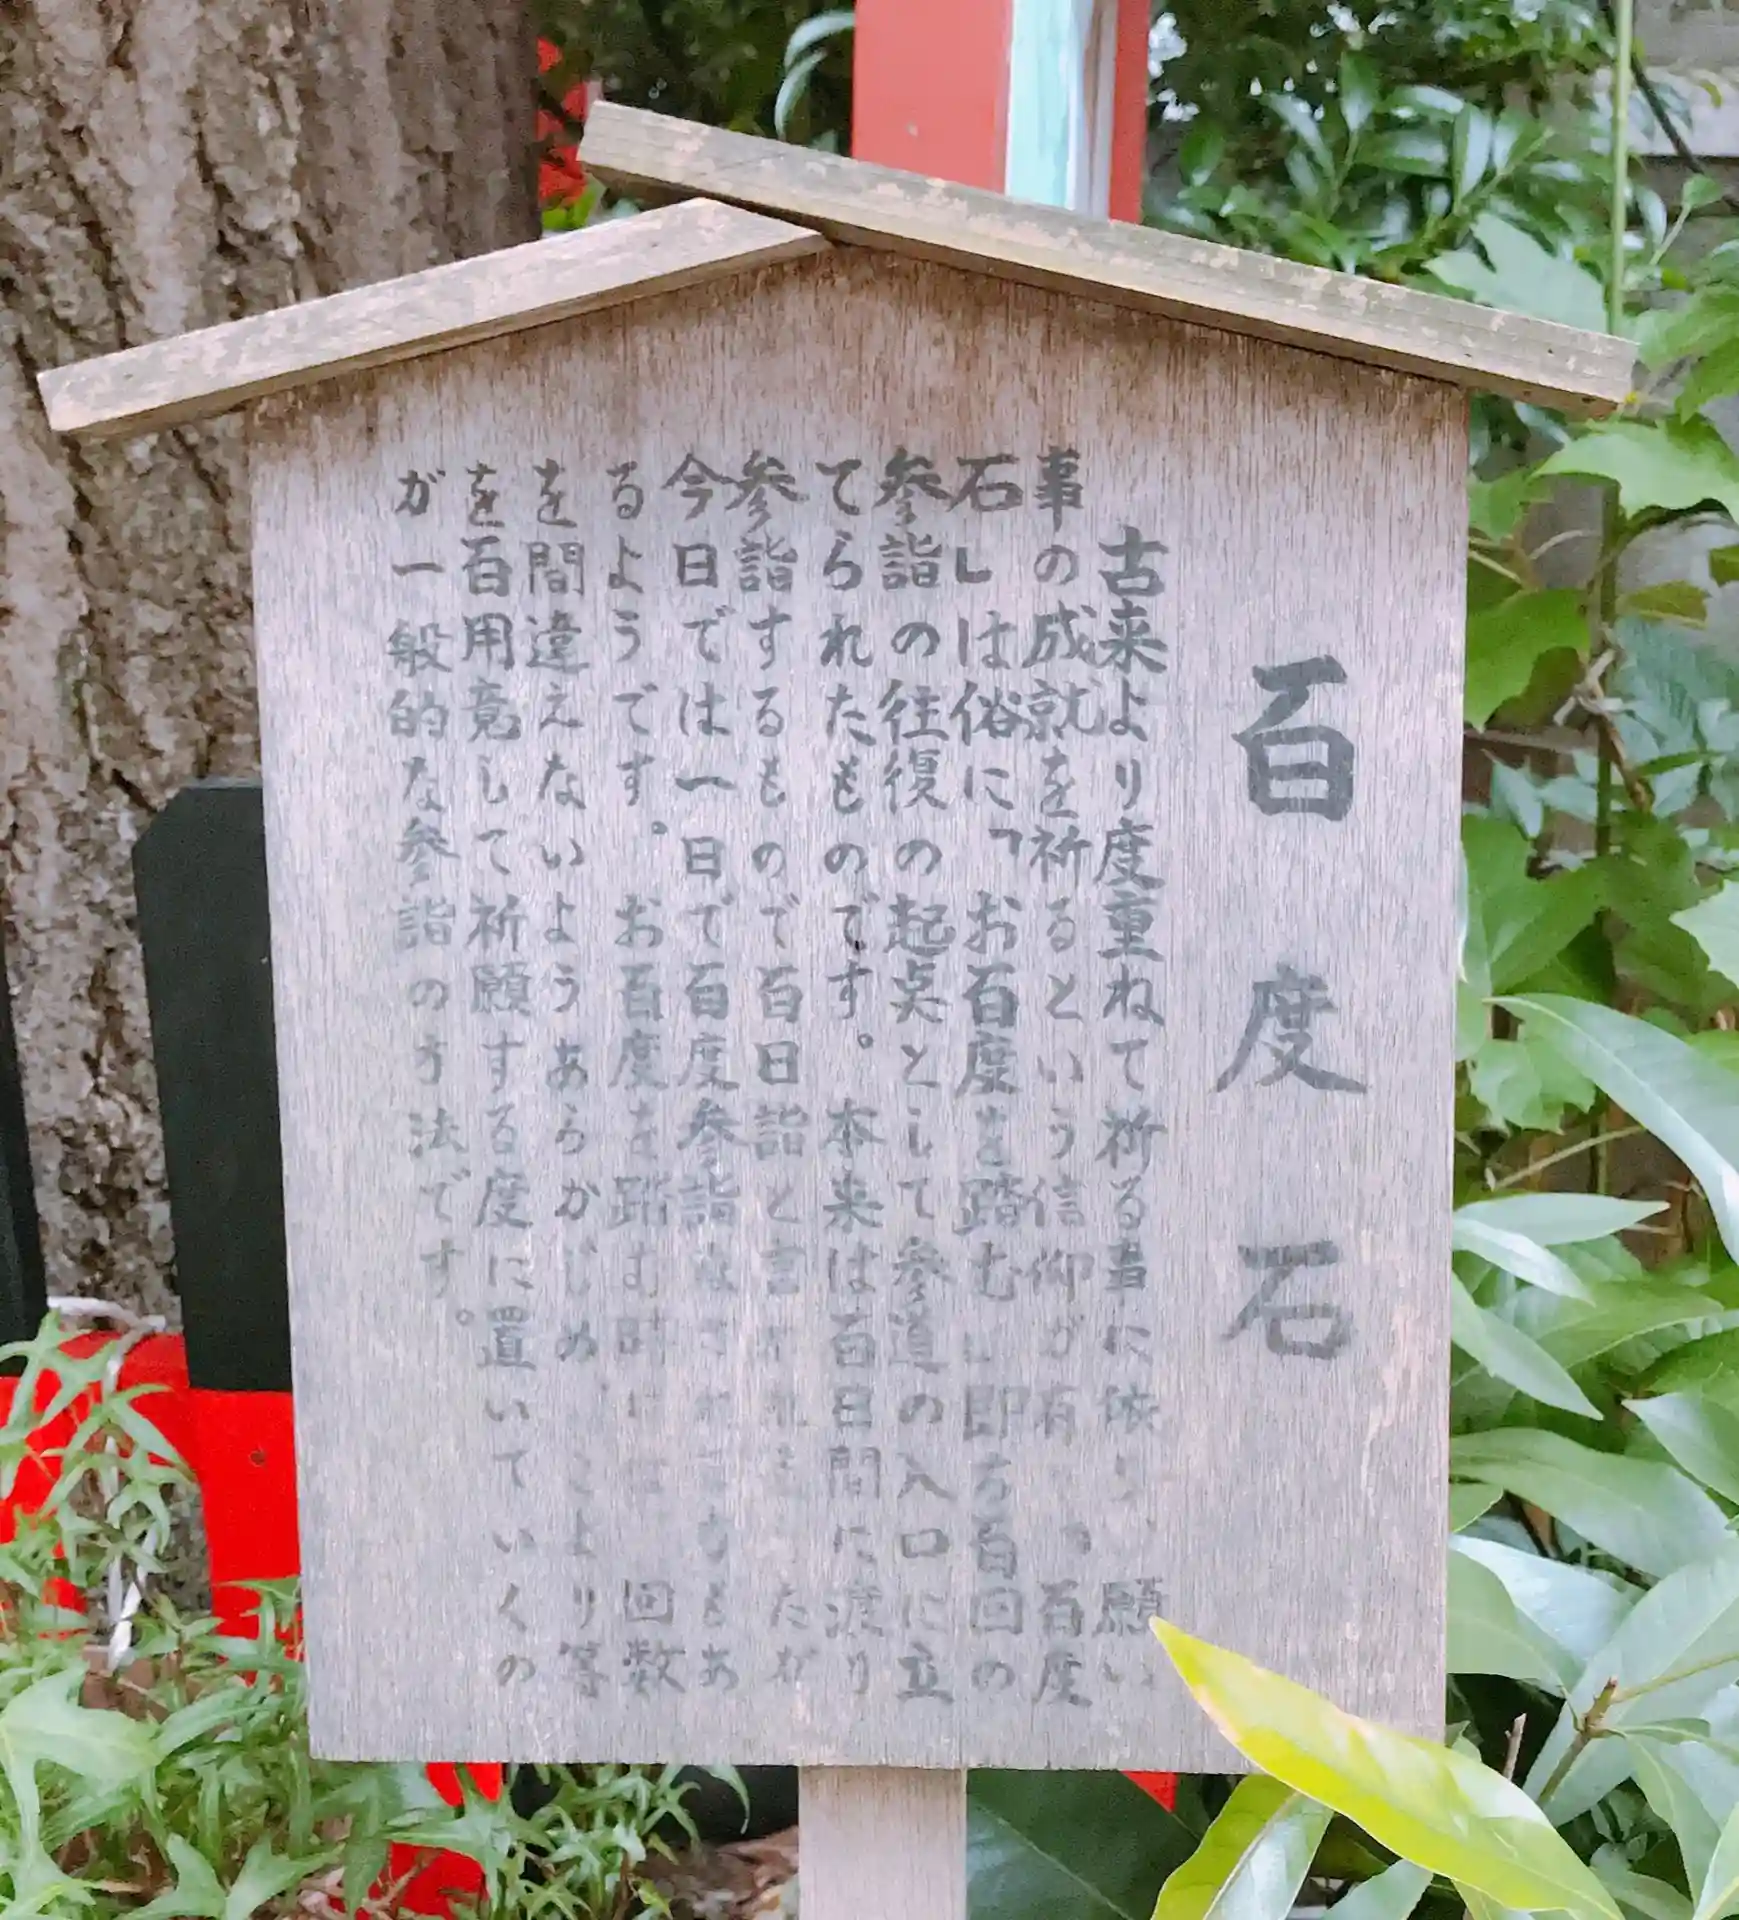 百度石
古来より度重ねて祈る事に依り、願い
事の成就を祈るという信仰が有 、百度
石」は俗に「お百度を踏む」即ち百回の
参詣の往復の起点として参道の入口に立
てられたものです。本来は百日間に渡り
参詣するもので百日詣と言 れ たが
今日では一日で百度参詣 もあ
るようです。お百度を踏む時には 回数
を間違えないようあらかじめ、こより等
を百用意して祈願する度に置いていくの
が一般的な参詣の方法です。